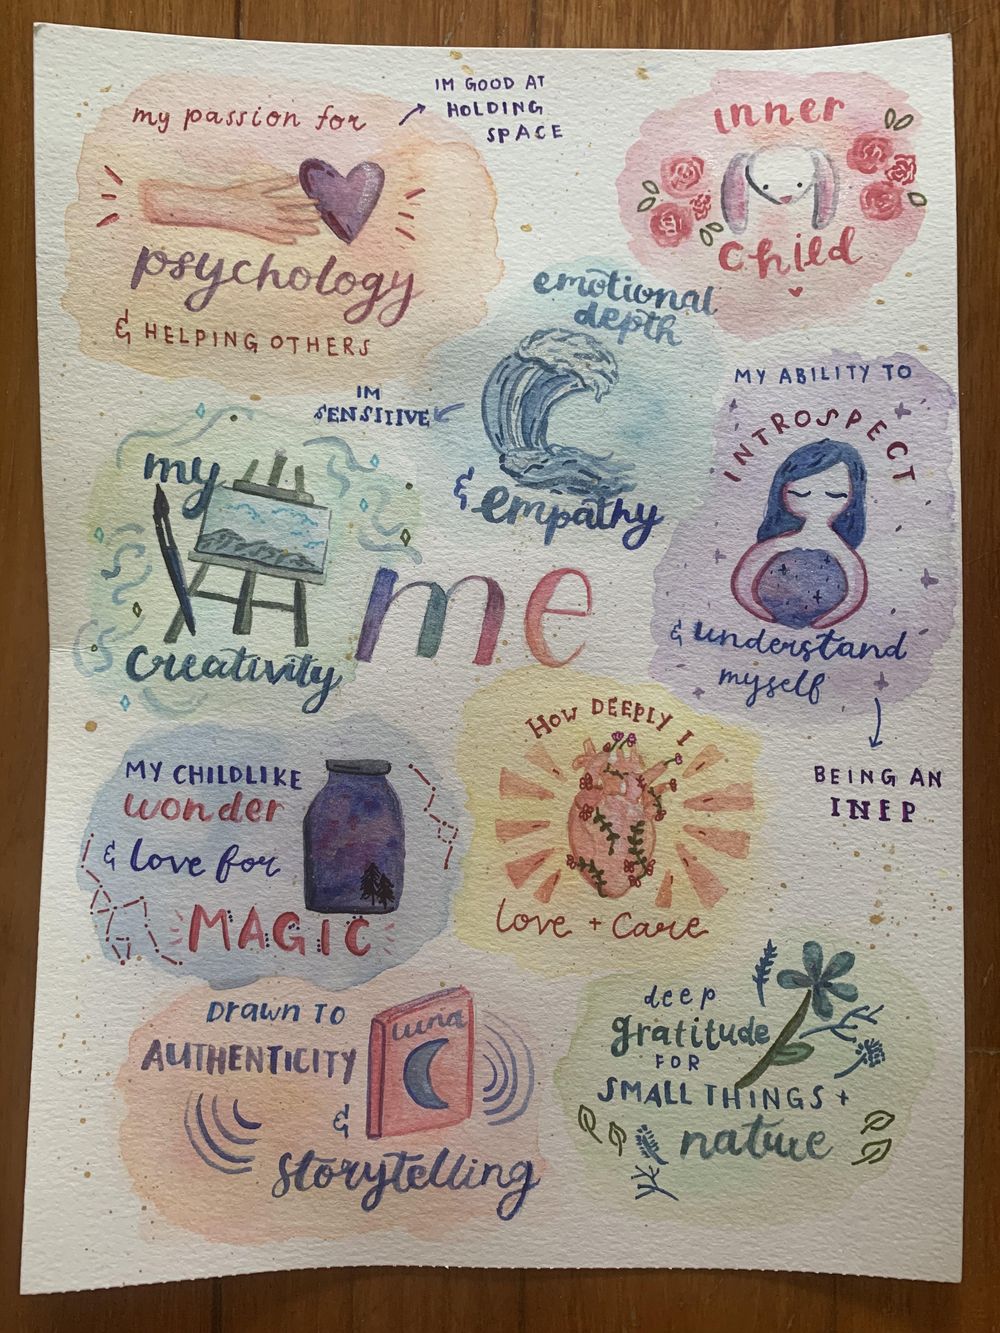 my passion for
psychology
& HELPING OTHERS
IM GOOD AT
HOLDING
SPACE
inner
child
emotional
depth
& empathy
IM
SENSITIVE
MY ABILITY TO
INTROSPECT
& understand
myself
BEING AN
INFP
my
creativity
me
MY CHILDLIKE
wonder
& love for
MAGIC
HOW DEEPLY I
love + care
DRAWN TO
AUTHENTICITY
&
storytelling
luna
deep
gratitude
FOR
SMALL THINGS +
nature